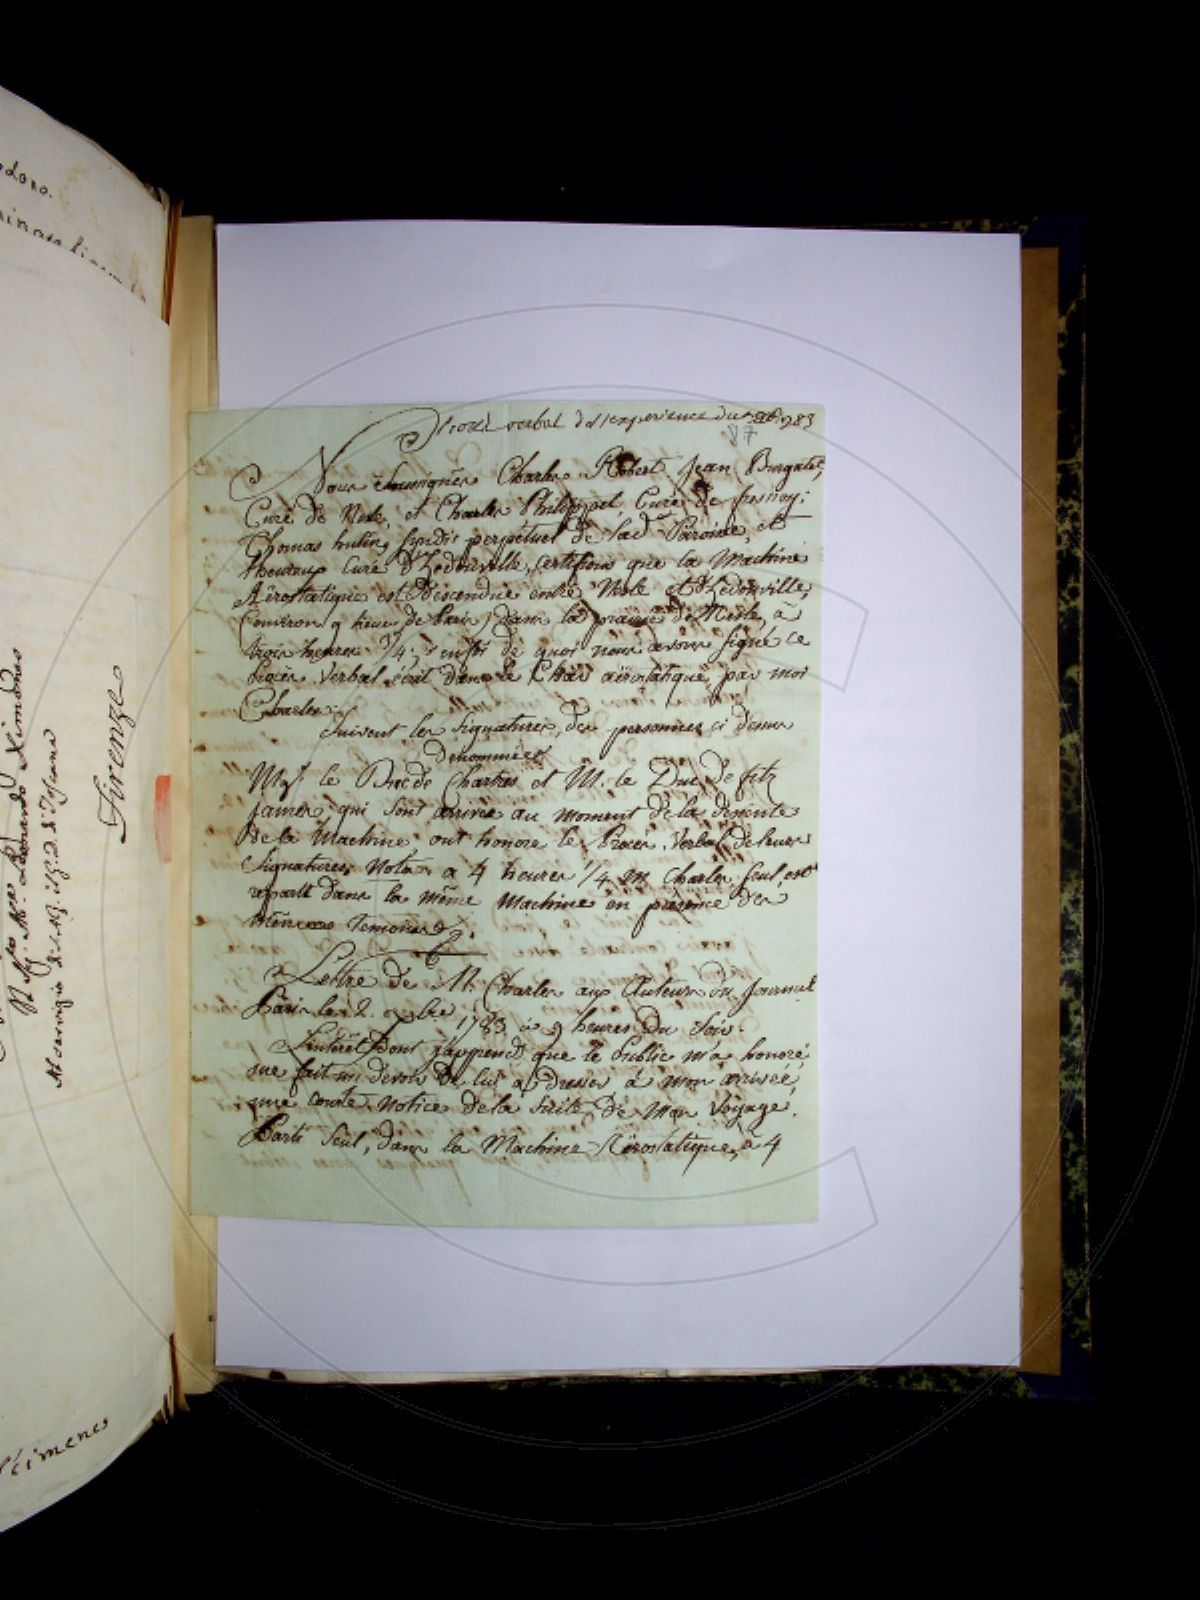 Procés verbal de l'experience du 1783
87
Nous Soussignés Charles Robert, Jean Burgalet,
Curé de Nesle, et Charles Philippet, Curé de fresnoy;
Thomas hutin, Syndic perpetuel de lad. Paroisse, et
Lheureux Curé D'hedouville, certifions que la Machine
Aërostatique est Descendue entre Nesle et D'hedouville,
(environ 9 lieues de Paris) dans la prairie de Nesle, à
trois heures 3/4. enfoi de quoi nous avons signé ce
Procès Verbal écrit dans le Char aërostatique, par moi
Charles.
Suivent les Signatures, des personnes ci dessus
Dénommées
Mgr le Duc de Chartres et M. le Duc de fitz
James, qui sont arrivés au moment de la descente
de la Machine ont honoré le Procès Verbal de leurs
Signatures, Nota, a 4 heures 1/4 M Charles seul, est
reparti dans la même Machine en présence des
mêmes Temoins
Lettre de M. Charles aux Auteurs du Journal
Paris le 2. 1783 à 9 heures Du Soir.
L'intérêt Dont j'apprend que le Public m'a honoré
me fait un devoir de lui adresser à mon arrivée,
une courte Notice de la Suite De Mon Voyage.
Parti Seul, dans la Machine Aërostatique, à 4
Firenze
Ximenes